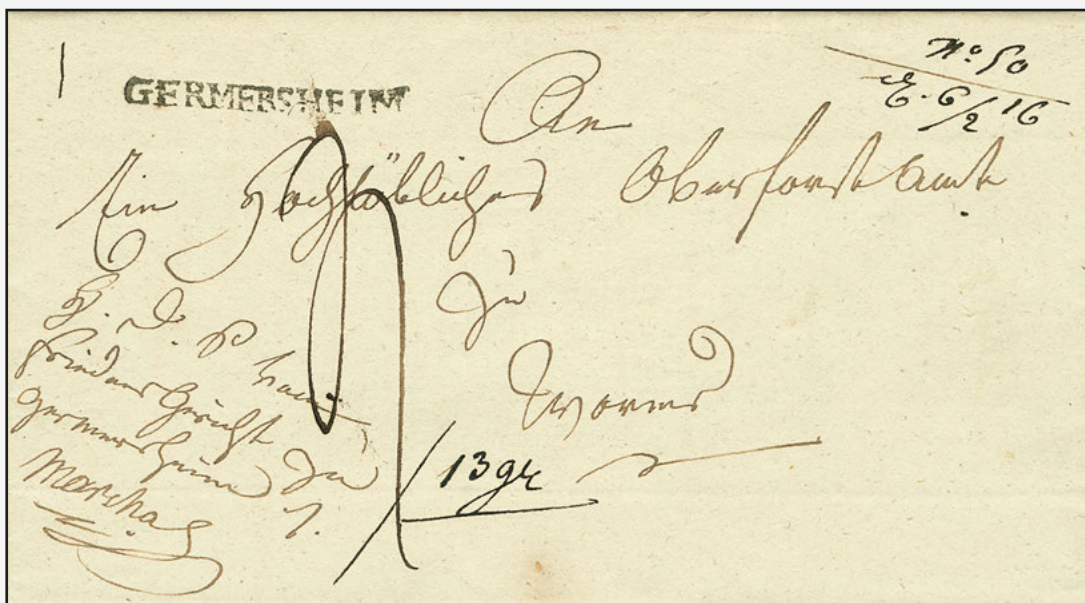 GERMERSHEIM
No 50
E. 6/2 16
An
Ein Hochlöbliches Oberforstamt
zu
Worms
Friedens Gericht
Germersheim
13 gr